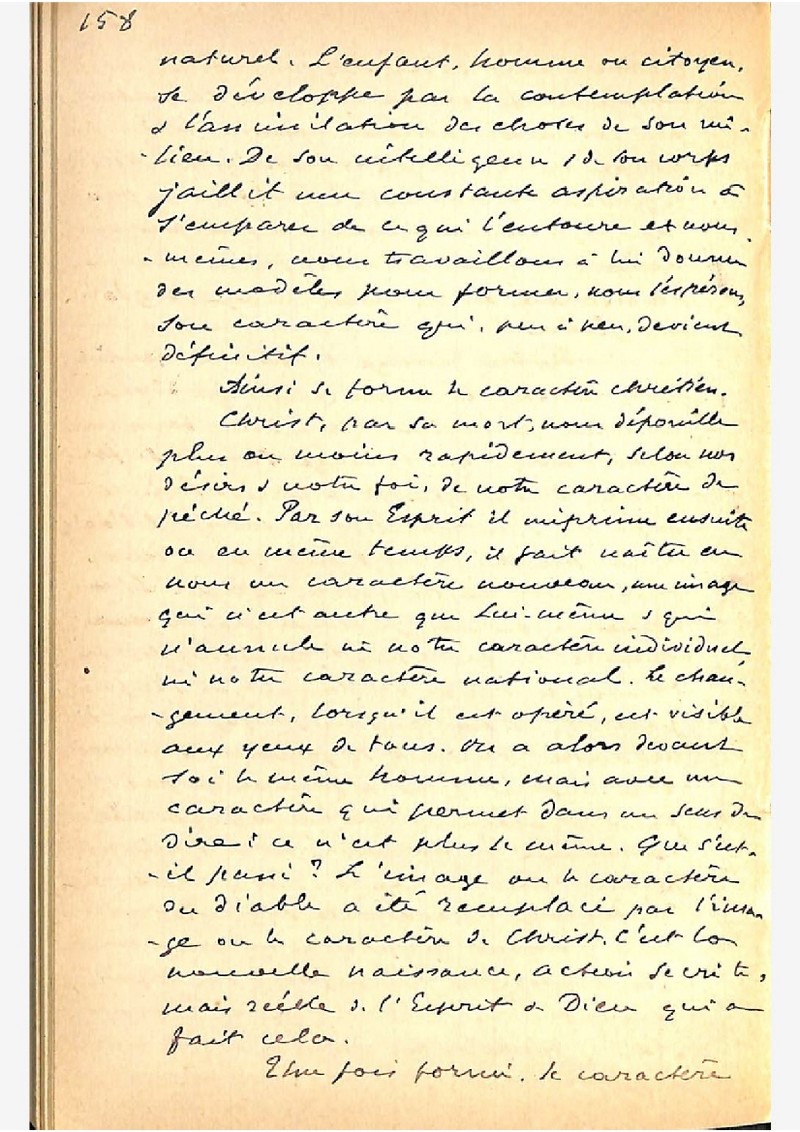 158
naturel. L'enfant, homme ou citoyen,
se développe par la contemplation
& l'assimilation des choses de son mi-
-lieu. De son intelligence & de son corps
jaillit une constante aspiration à
s'emparer de ce qui l'entoure et nous
-mêmes, nous travaillons à lui donner
des modèles pour former, nous l'espérons,
son caractère qui, peu à peu, devient
définitif.
Ainsi se forme le caractère chrétien.
Christ, par sa mort, nous dépouille
plus ou moins rapidement, selon nos
désirs & notre foi, de notre caractère de
péché. Par son Esprit il imprime ensuite
ou en même temps, il fait naître en
nous un caractère nouveau, une image
qui n'est autre que Lui-même & qui
n'annule ni notre caractère individuel
ni notre caractère national. Le chan-
-gement, lorsqu'il est opéré, est visible
aux yeux de tous. On a alors devant
soi le même homme, mais avec un
caractère qui permet dans un sens de
dire : ce n'est plus le même. Que s'est-
-il passé ? L'image ou le caractère
du diable a été remplacé par l'ima-
-ge ou le caractère de Christ. C'est la
nouvelle naissance, action secrète,
mais réelle de l'Esprit de Dieu qui a
fait cela.
Une fois formé, le caractère